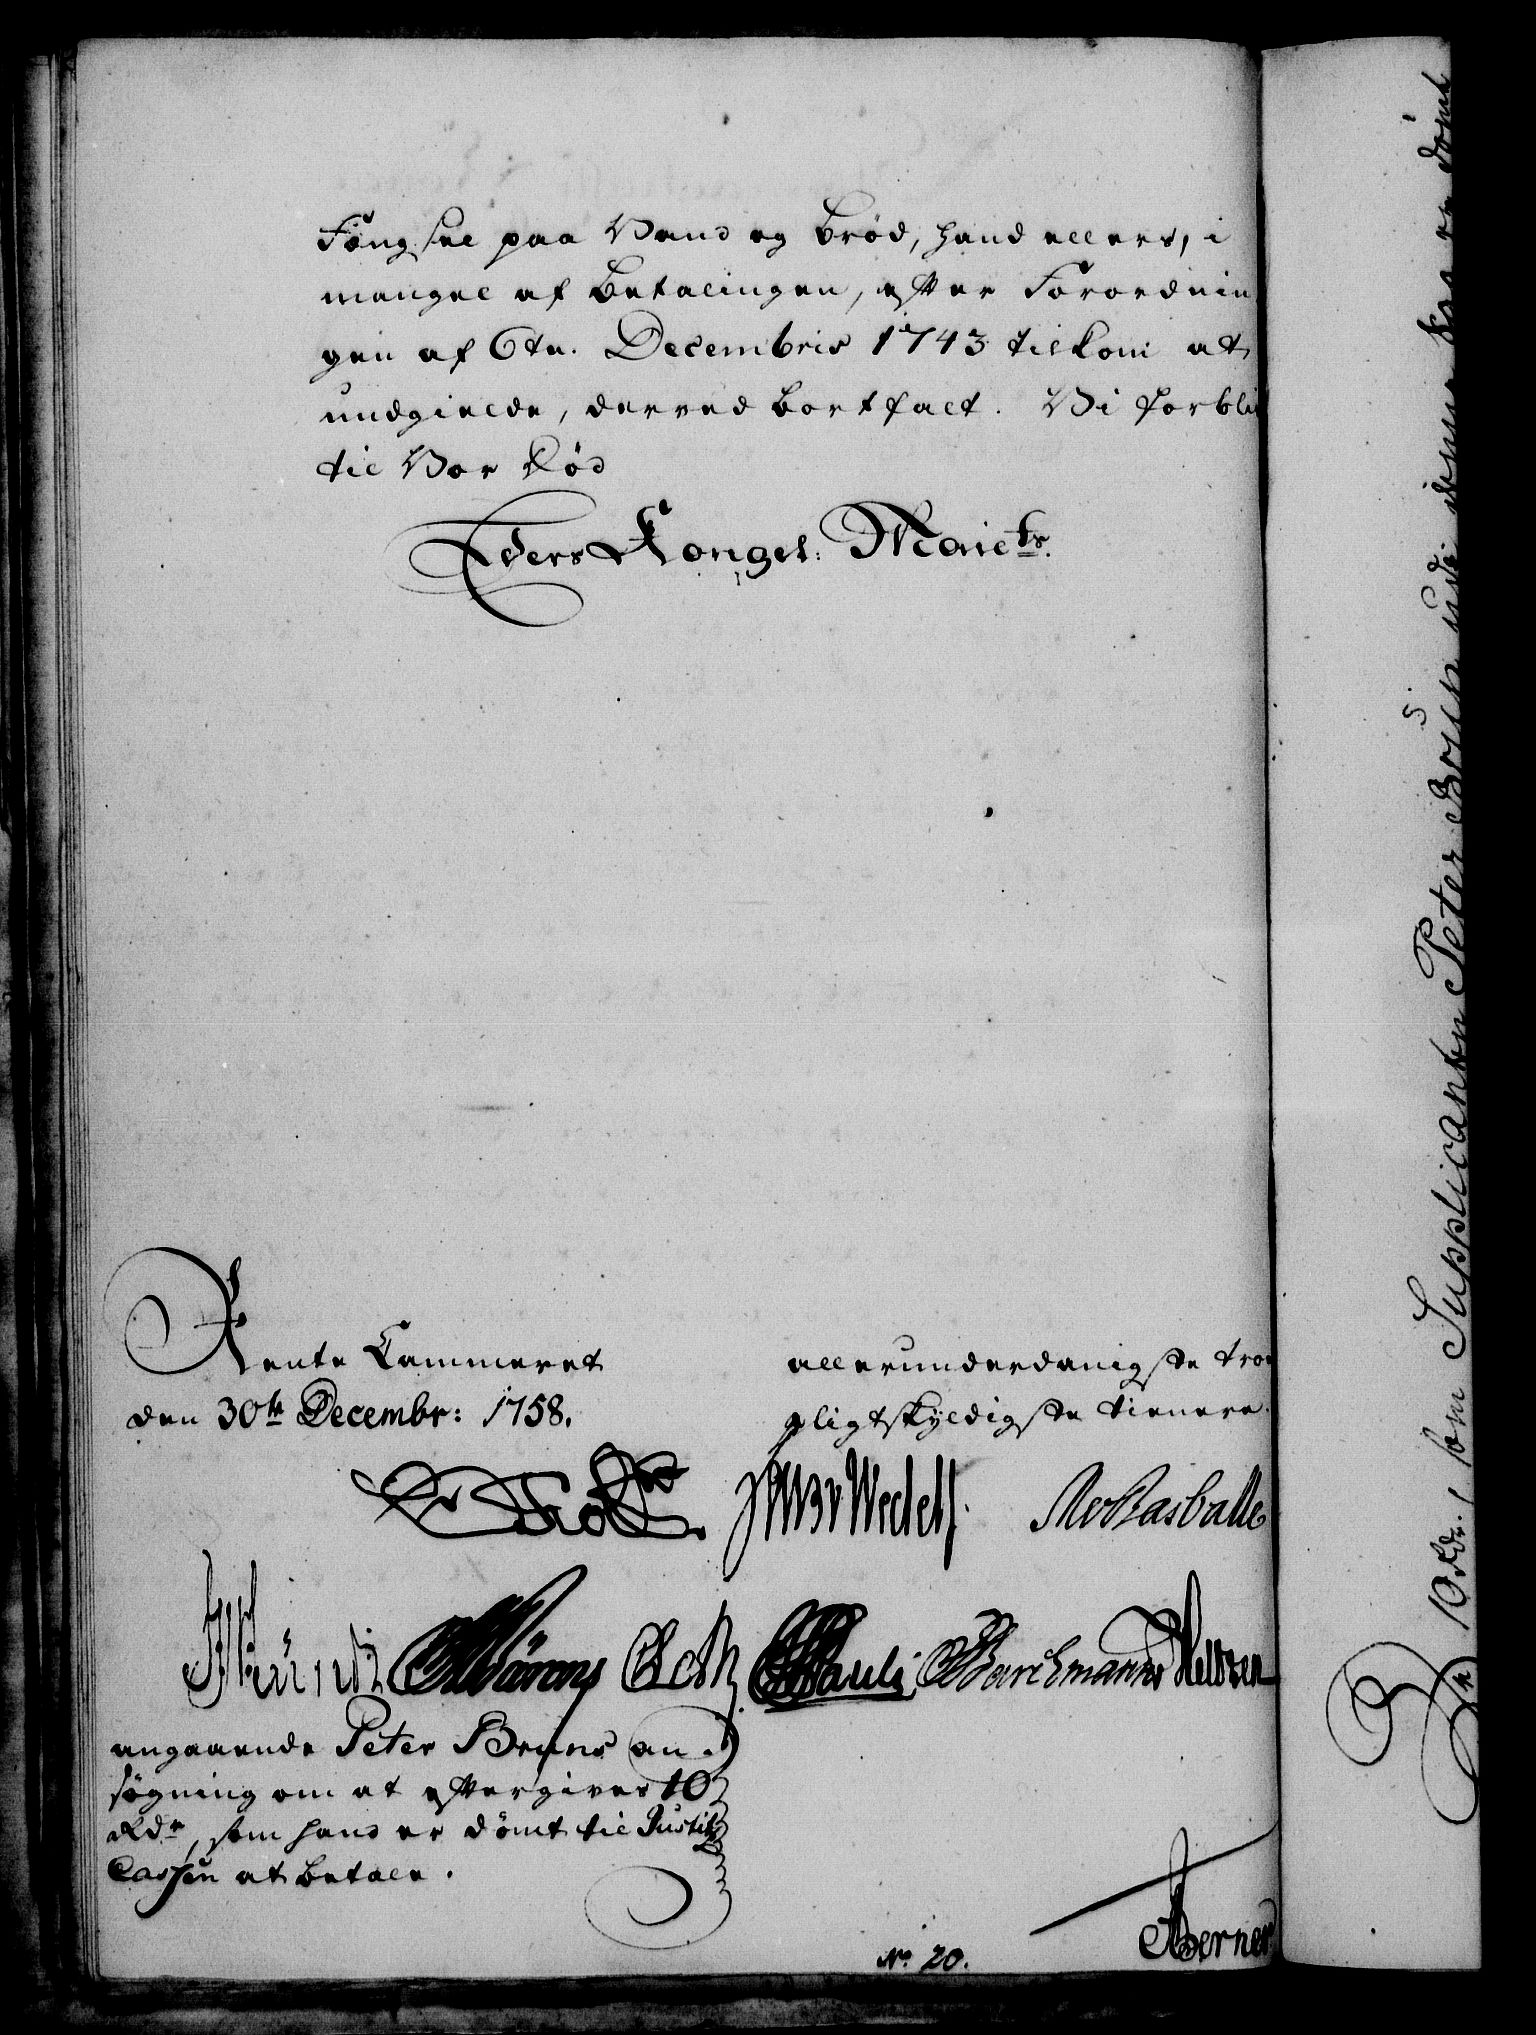 Fængsel paa Vand og Brød, hand ellers, i
mangel af Betalingen, efter Forordnin
gen af 6te. Decembris 1743 tilkom at
undgielde, derved bortfalt. Vi forbli
til Vor Død
Eders Kongel: Mayets.
Rente Cammeret
den 30te Decembr: 1758.
allerunderdanigste tro
pligtskyldigste tienere.
Wedell
Pauli Barchmann
angaaende Peter Bruns an-
søgning om at eftergives 10
Rdr, som hand er dømt til Justitz
Cassen at betale.
No. 20.
Berner
10 Rdr., som Supplicanten Peter Brun udi denne Sag er dømt